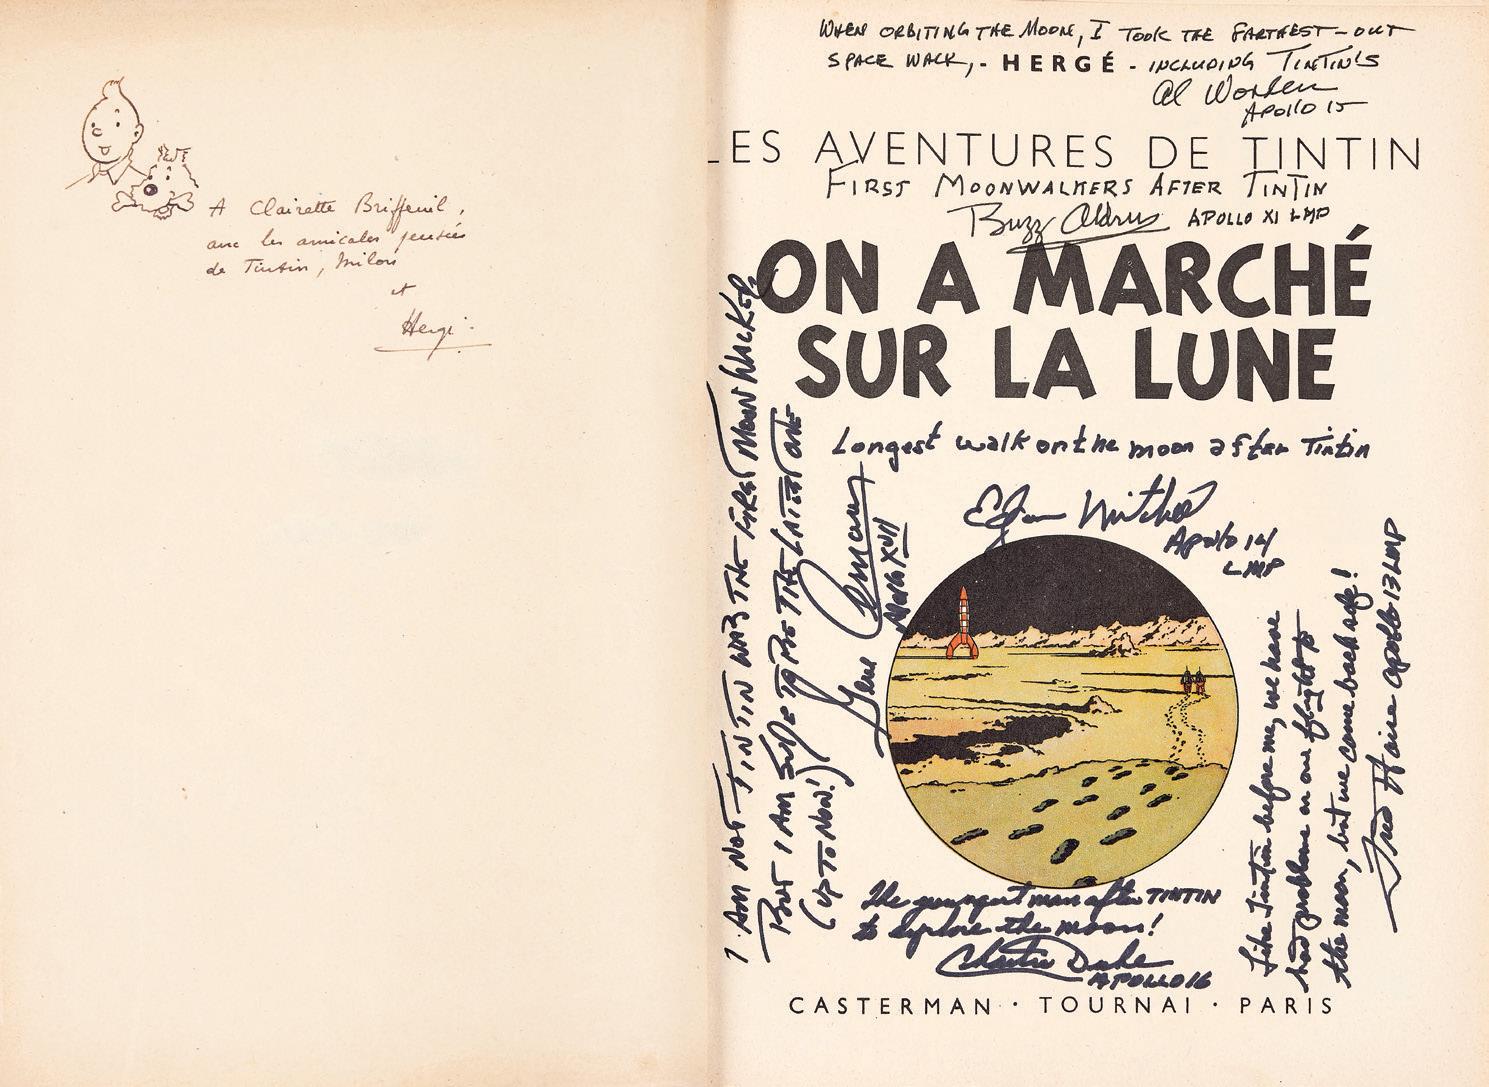 A Clairette Briffeuil,
avec les amicales pensées
de Tintin, Milou
et
Hergé.
WHEN ORBITING THE MOON, I TOOK THE FARTHEST-OUT
SPACE WALK, - HERGÉ - INCLUDING TINTIN'S
Al Worden
APOLLO 15
LES AVENTURES DE TINTIN
FIRST MOONWALKERS AFTER TINTIN
Buzz Aldrin APOLLO XI LMP
ON A MARCHÉ
SUR LA LUNE
Longest walk on the moon after Tintin
Edgar Mitchell
Apollo 14
LMP
I AM NOT-TINTIN WAS THE FIRST MOON WALKER,
BUT I AM SURE TO BE THE LATEST ONE
(UP TO NOW!)
Gene Cernan
Apollo XVII
Like Tintin before me, we have
had problems on our flight to
the moon, but we came back safe!
Fred Haise apollo 13 LMP
The youngest man after TINTIN
to explore the moon!
Charlie Duke
APOLLO 16
CASTERMAN · TOURNAI · PARIS